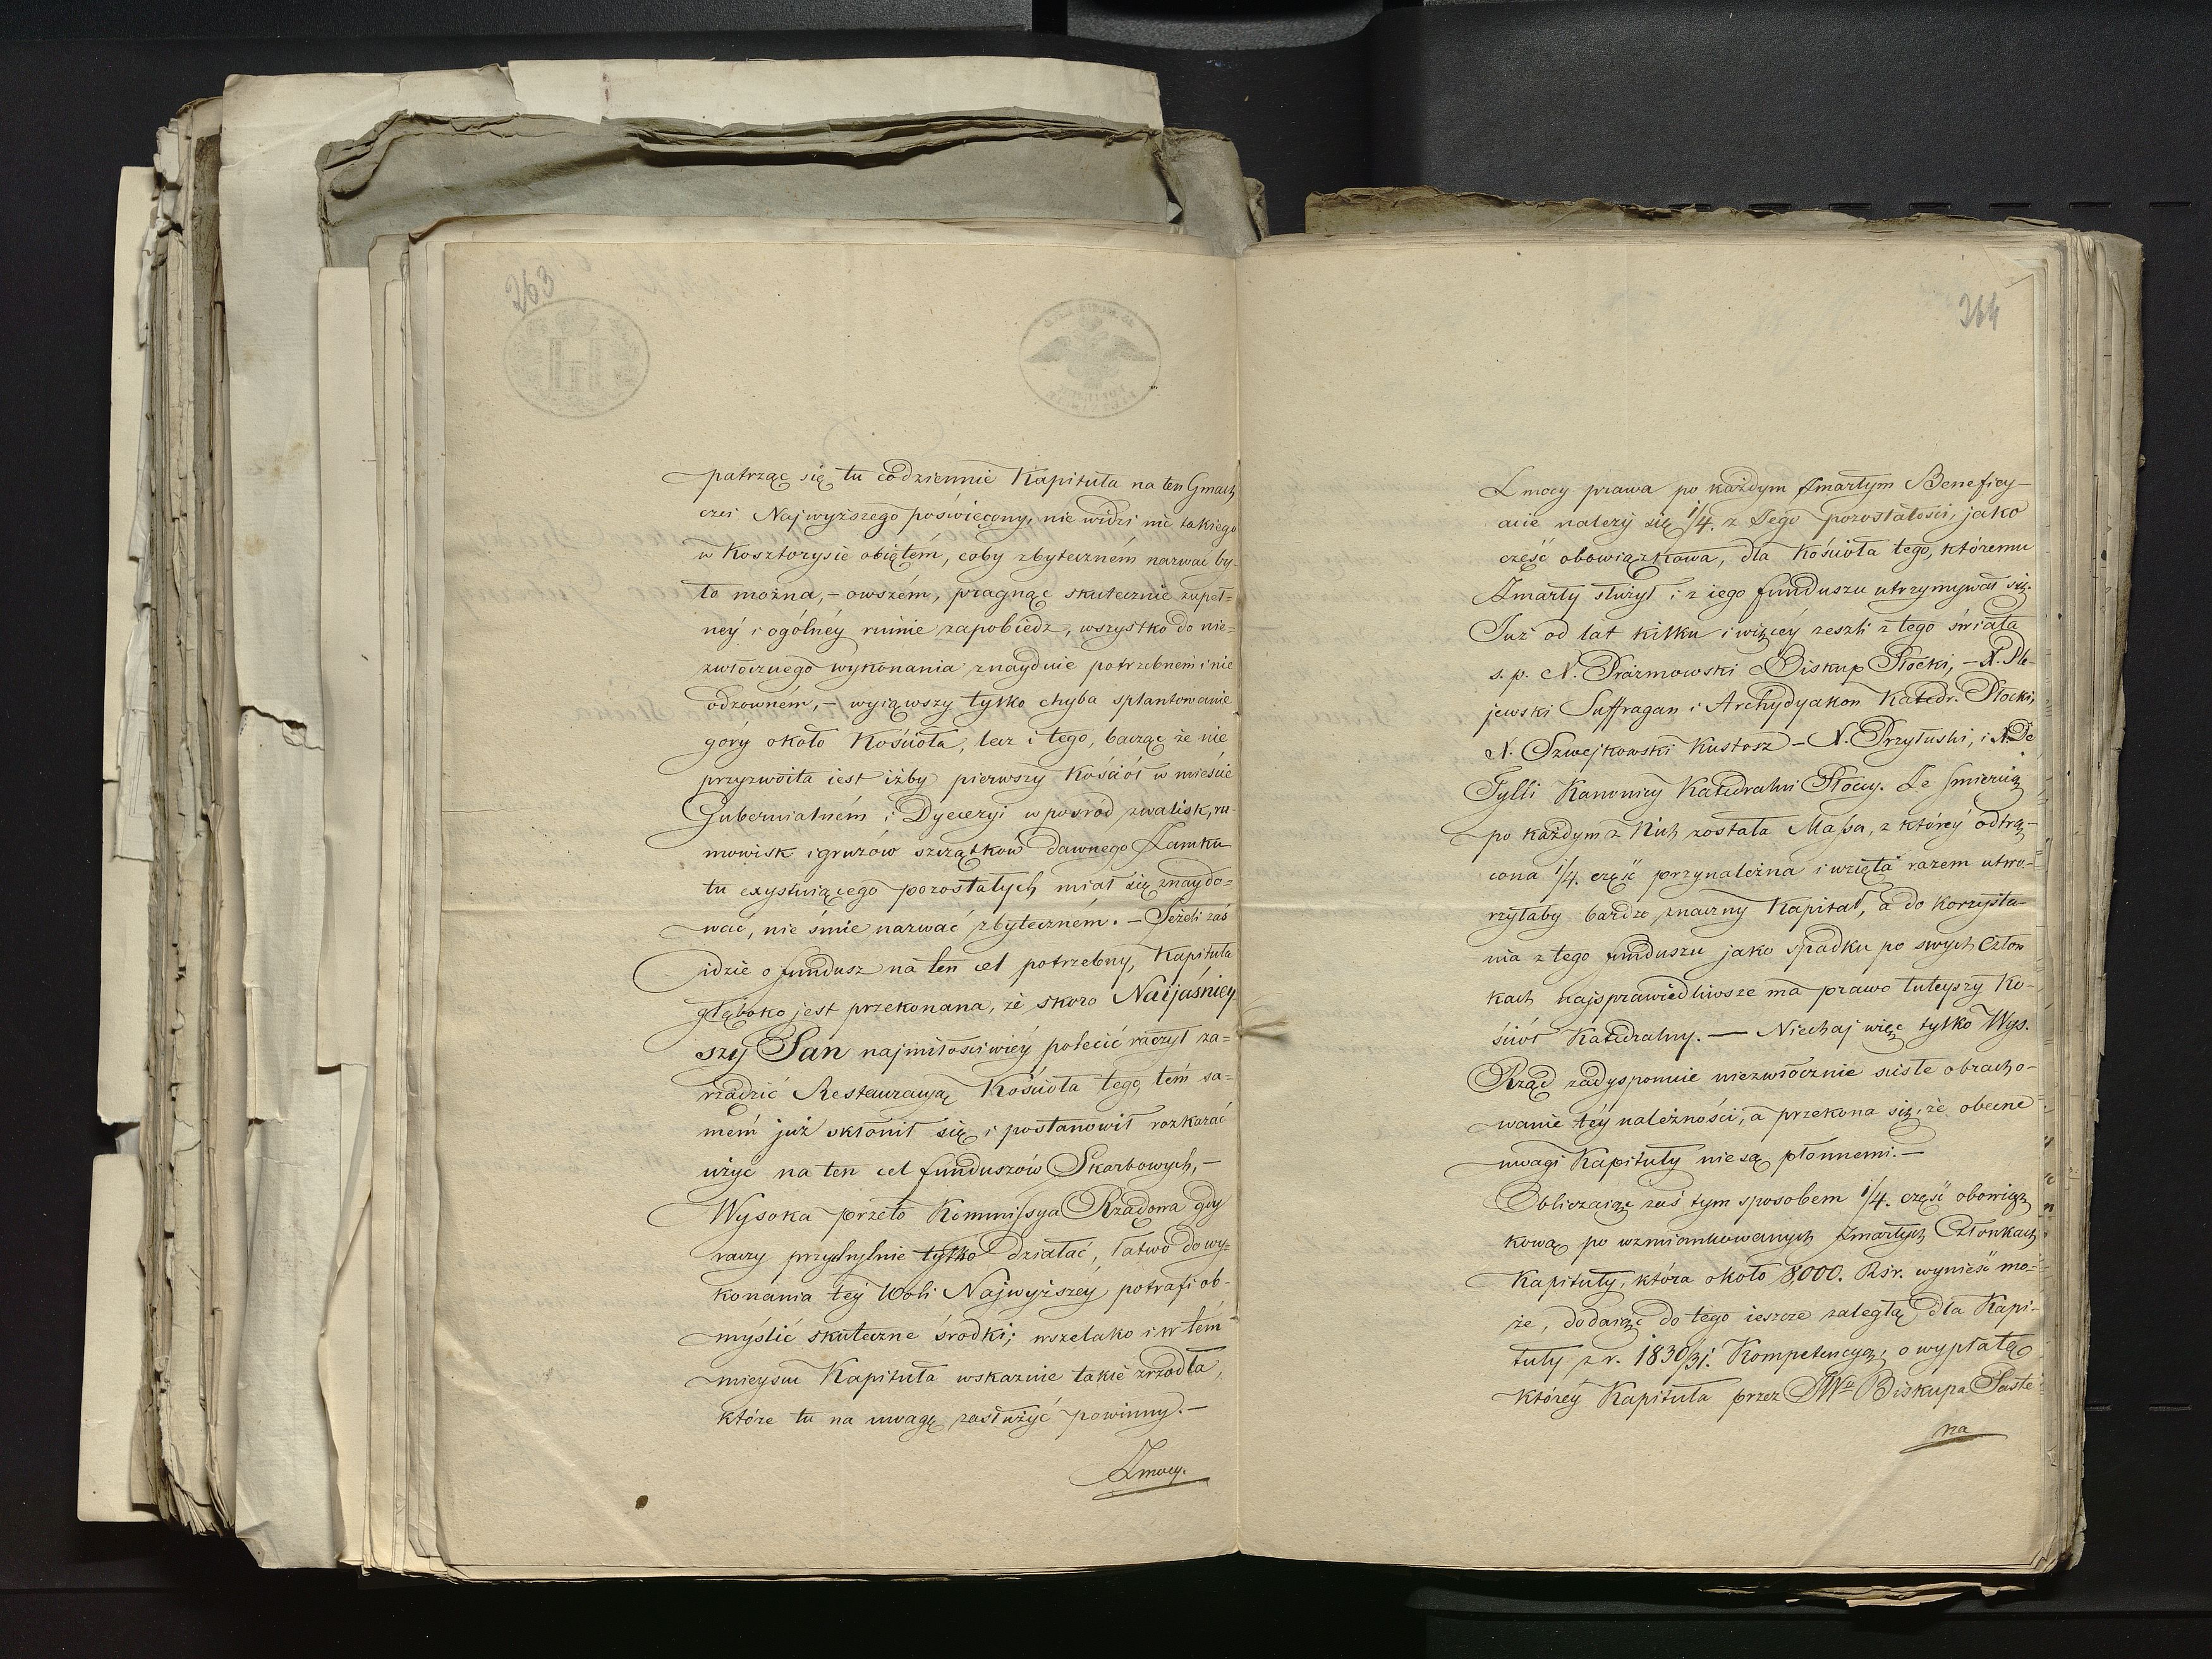 263
patrząc się tu codziennie Kapituła na ten Gmach
czci Najwyższego poświęcony, nie widzi nic takiego
w Kosztorysie obiętém, coby zbyteczném nazwać by-
ło można, – owszém, pragnąc skutecznie zupeł=
néy i ogólnéy ruinie zapobiedz, wszystko do nie=
zwłocznego wykonania znayduie potrzebném i nie
odzowném, – wyiąwszy tylko chyba splantowanie
góry około Kościoła, lecz i tego, bacząc że nie
przyzwoita iest iżby pierwszy Kościół w mieście
Gubernialném i Dyecezyi w pośród zwalisk, ru-
mowisk i gruzów szczątków dawnego Zamku
tu exystuiącego pozostałych miał się znaydo=
wać, nie śmie nazwać zbyteczném. – Jeżeli zaś
idzie o fundusz na ten cel potrzebny, Kapituła
głęboko jest przekonana, że skoro Naijaśniey
szy Pan najmiłościwiéy polecić raczył za=
rządzić Restauracyą Kościoła tego, tém sa=
mém już skłonił się i postanowił rozkazać
użyć na ten cel funduszów Skarbowych, –
Wysoka przeto Kommissya Rządowa gdy
raczy przychylnie tylko działać, łatwo do wy=
konania téy Woli Najwyższéy potrafi ob-
myślić skuteczne środki; wszelako i w tém
mieyscu Kapituła wskazuie takie źrzódła,
które tu na uwagę zasłużyć powinny. –
Z mocy.
264
Z mocy prawa po każdym Zmarłym Beneficy-
acie należy się 1/4. z Jego pozostałości, jako
część obowiązkowa, dla Kościoła tego, któremu
Zmarły służył i z iego funduszu utrzymywał się.
Już od lat kilku i więcéy zeszli z tego świata
ś. p. X. Prażmowski Biskup Płocki, – X. Ple-
jewski Suffragan i Archydyakon Katedr. Płocki,
X. Szwejkowski Kustosz – X. Przyłuski, i X. De
Tylli Kanonicy Katedralni Płoccy. Ze śmiercią
po każdym z Nich została Massa, z któréy odtrą-
cona 1/4. część przynależna i wzięta razem utwo-
rzyłaby bardzo znaczny Kapitał, a do korzysta-
nia z tego funduszu jako spadku po swych Człon
kach najsprawiedliwsze ma prawo tuteyszy Ko-
ściół Katedralny. — Niechaj więc tylko Wys.
Rząd zadysponuie niezwłocznie ścisłe obracho-
wanie téy należności, a przekona się, że obecne
uwagi Kapituły nie są płonnemi. –
Obliczaiąc zaś tym sposobem 1/4. część obowiąz
kową po wzmiankowanych Zmarłych Członkach
Kapituły, która około 8,000. Rśr. wynieść mo-
że, dodaiąc do tego ieszcze zaległą dla Kapi-
tuły z r. 1830/31. Kompetencyą, o wypłatę
któréy Kapituła przez JW° Biskupa Paste
rza